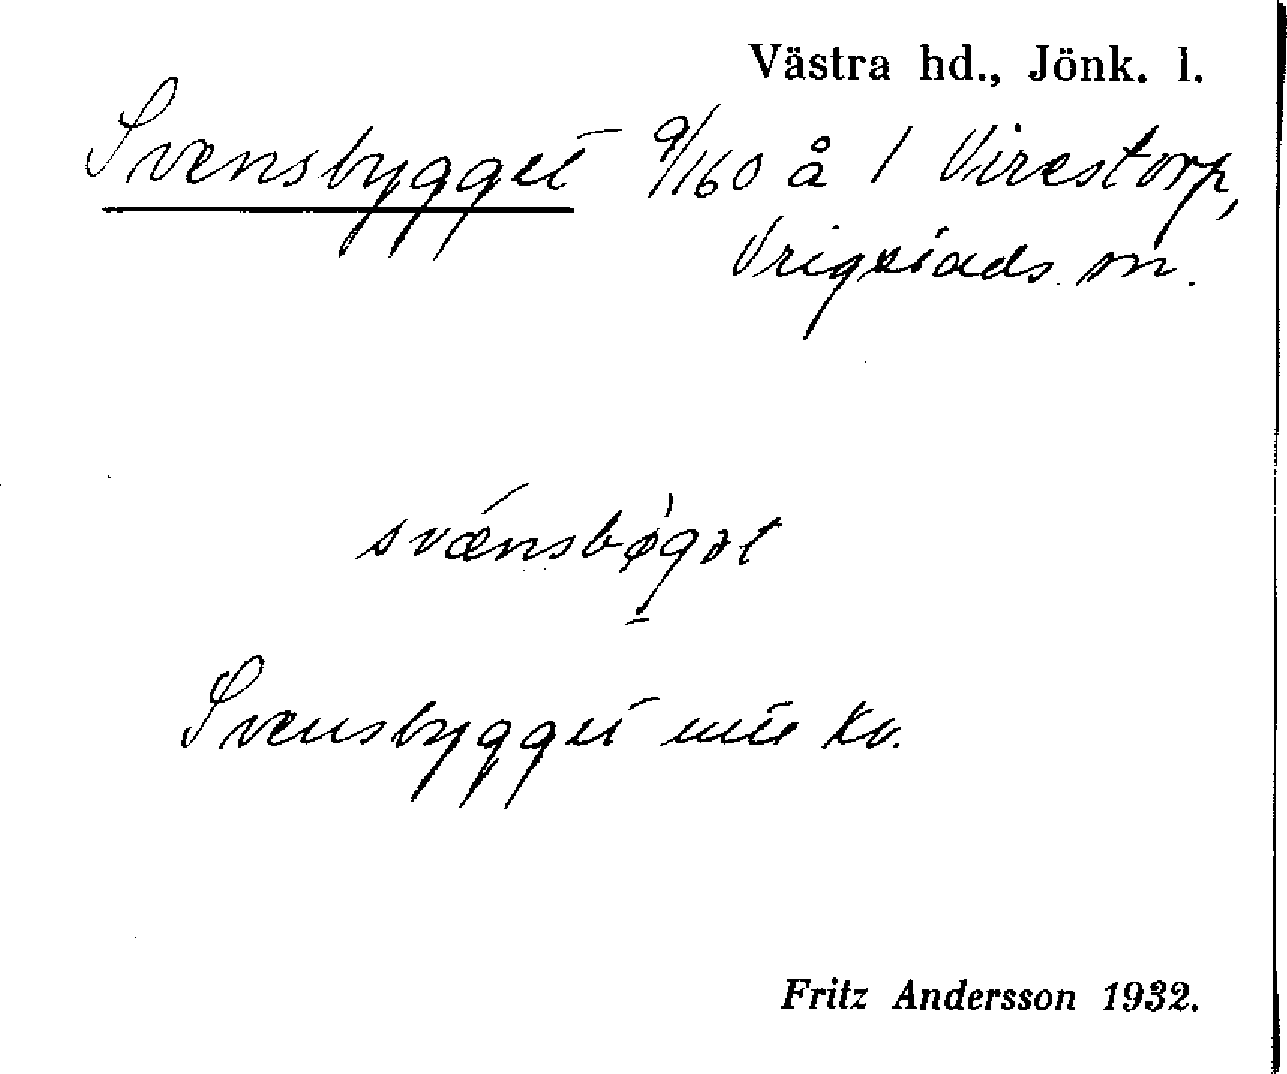 Västra hd., Jönk. l.
Svensbygget 9/160 å 1 Virestorp,
Vrigstads sn.
svǽnsbøgət
Svensbygget ute kv.
Fritz Andersson 1932.